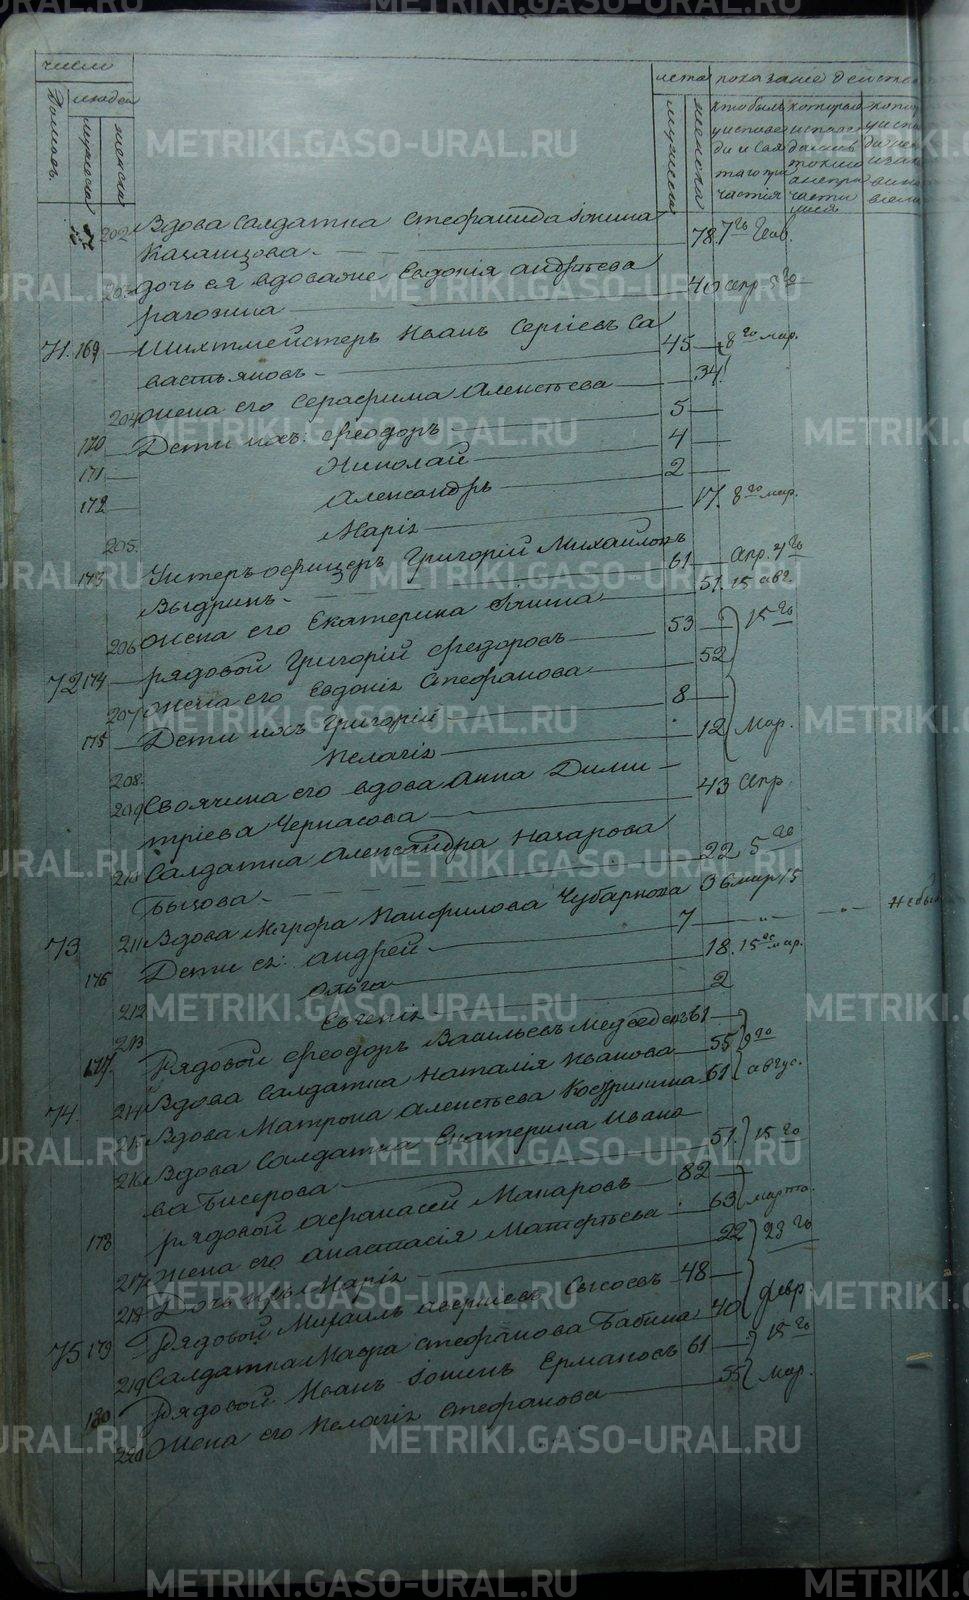 число
людей
Домовъ.
мужеска
женска
лета
показаніе действа
мужска
женска
кто былъ у исповеди и святаго причастія
которые исповедались токмо а не причастились
202 Вдова Салдатка Стефанида Іонина
Казанцова. 78. 7го Генв.
203 дочь ея вдова же Евдокія Андреева
рагозина 40 апр. 5го
71. 169 Шихтмейстеръ Иванъ Сергіевъ Са
вастьяновъ 45 8го мар.
204 жена его Серафима Алексеева 34
170 Дети ихъ: Феодоръ 5
171 Николай 4
172 Александръ 2
205. Марія 17. 8го мар.
173 Унтеръ-офицеръ Григорій Михайловъ
Выдринъ. 61 Апр. 4го
206 жена его Екатерина Іонина 51. 15 авг.
72 174 рядовой Григорій Феодоровъ 53 15го
207 жена его Евдокія Стефанова 52
175 Дети ихъ Григорій 8
208. Пелагія 12 Мар.
209 Своячина его вдова Анна Дими
тріева Черкасова 43 Апр.
210 Салдатка Александра Назарова
Бызова. 22 5го
73 211 Вдова Марфа Панфилова Чубаркова 36 мар 15
176 Дети ея: Андрей 7
212 Ольга 18. 15го мар.
213 Евгенія 2
177. Рядовой Феодоръ Васильевъ Медведевъ 61
74. 214 Вдова Салдатка Наталія Иванова 55 9го
215 Вдова Матрона Алексеева 61 авгус.
216 Вдова Салдатка Екатерина Ивано
ва Бисерова 51. 15го
178 рядовой Афанасей Макаровъ 82
217 Жена его Анастасія Матфеева 63 марта.
218 Дочь ихъ Марія 22 23го
75 179 Рядовой Михаилъ Аверкиевъ Сысоевъ 48
219 Салдатка Мавра Стефанова Бабина 40 Февр
180 Рядовой Иванъ Іонинъ Ермаковъ 61 15го
220 Жена его Пелагія Стефанова 55 Мар.
METRIKI.GASO-URAL.RU